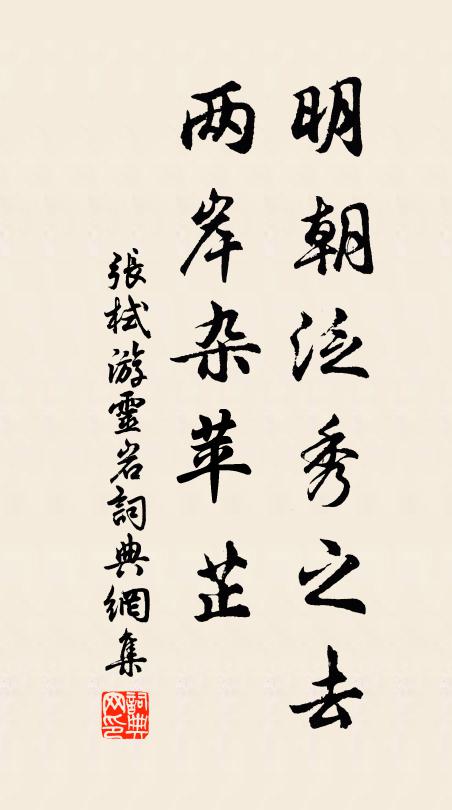 明朝泛秀之去
两岸杂苹芷
張栻游靈岩詞典網集
詞典网印